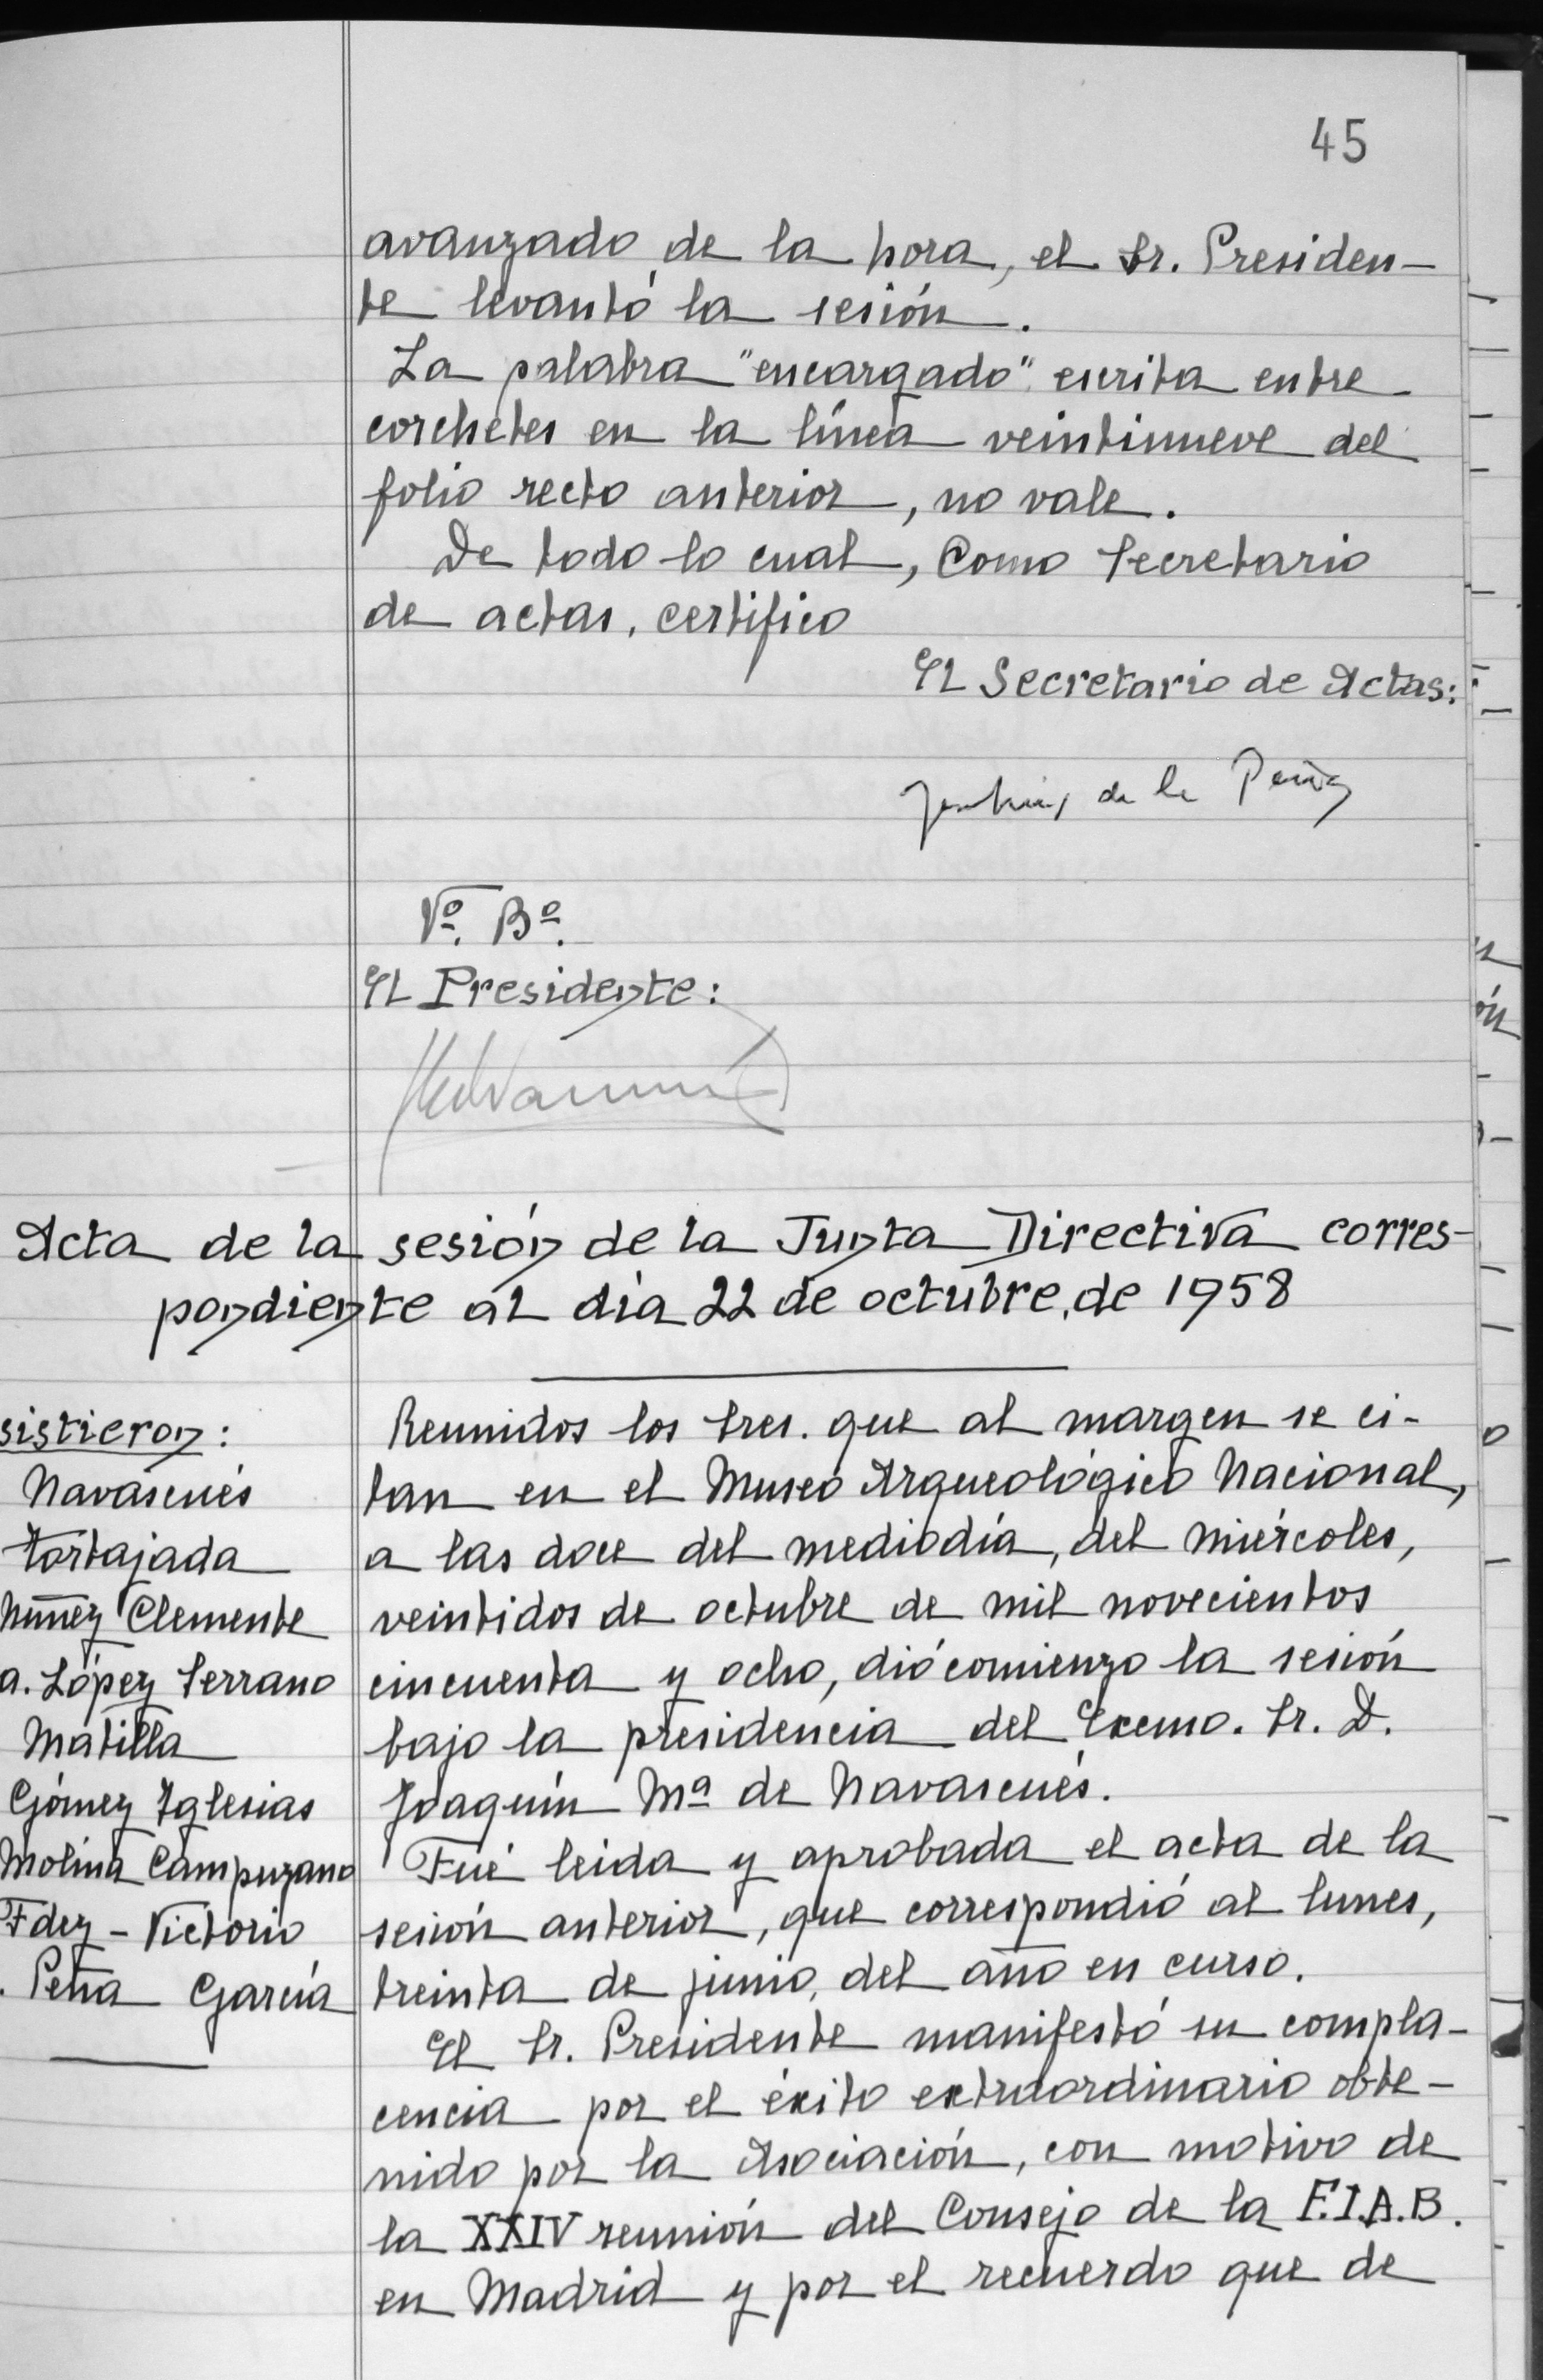 45
avanzado de la hora, el Sr. Presiden-
te levantó la sesión.
La palabra "encargado" escrita entre
corchetes en la línea veintinueve del
folio recto anterior, no vale.
De todo lo cual, como Secretario
de actas, certifico
El Secretario de Actas:
de la Peña
Vº. Bº.
El Presidente:
Acta de la sesión de la Junta Directiva corres-
pondiente al día 22 de octubre, de 1958
sistieron:
Navascués
Tortajada
Núñez Clemente
a. López Serrano
Matilla
Gómez Iglesias
Molina Campuzano
Fdez-Victorio
. Peña García
Reunidos los Sres. que al margen se ci-
tan en el Museo Arqueológico Nacional,
a las doce del mediodía, del miércoles,
veintidos de octubre de mil novecientos
cincuenta y ocho, dió comienzo la sesión
bajo la presidencia del Excmo. Sr. D.
Joaquín Mª de Navascués.
Fué leida y aprobada el acta de la
sesión anterior, que correspondió al lunes,
treinta de junio, del año en curso.
El Sr. Presidente manifestó su compla-
cencia por el éxito extraordinario obte-
nido por la Asociación, con motivo de
la XXIV reunión del Consejo de la F.I.A.B.
en Madrid y por el recuerdo que de